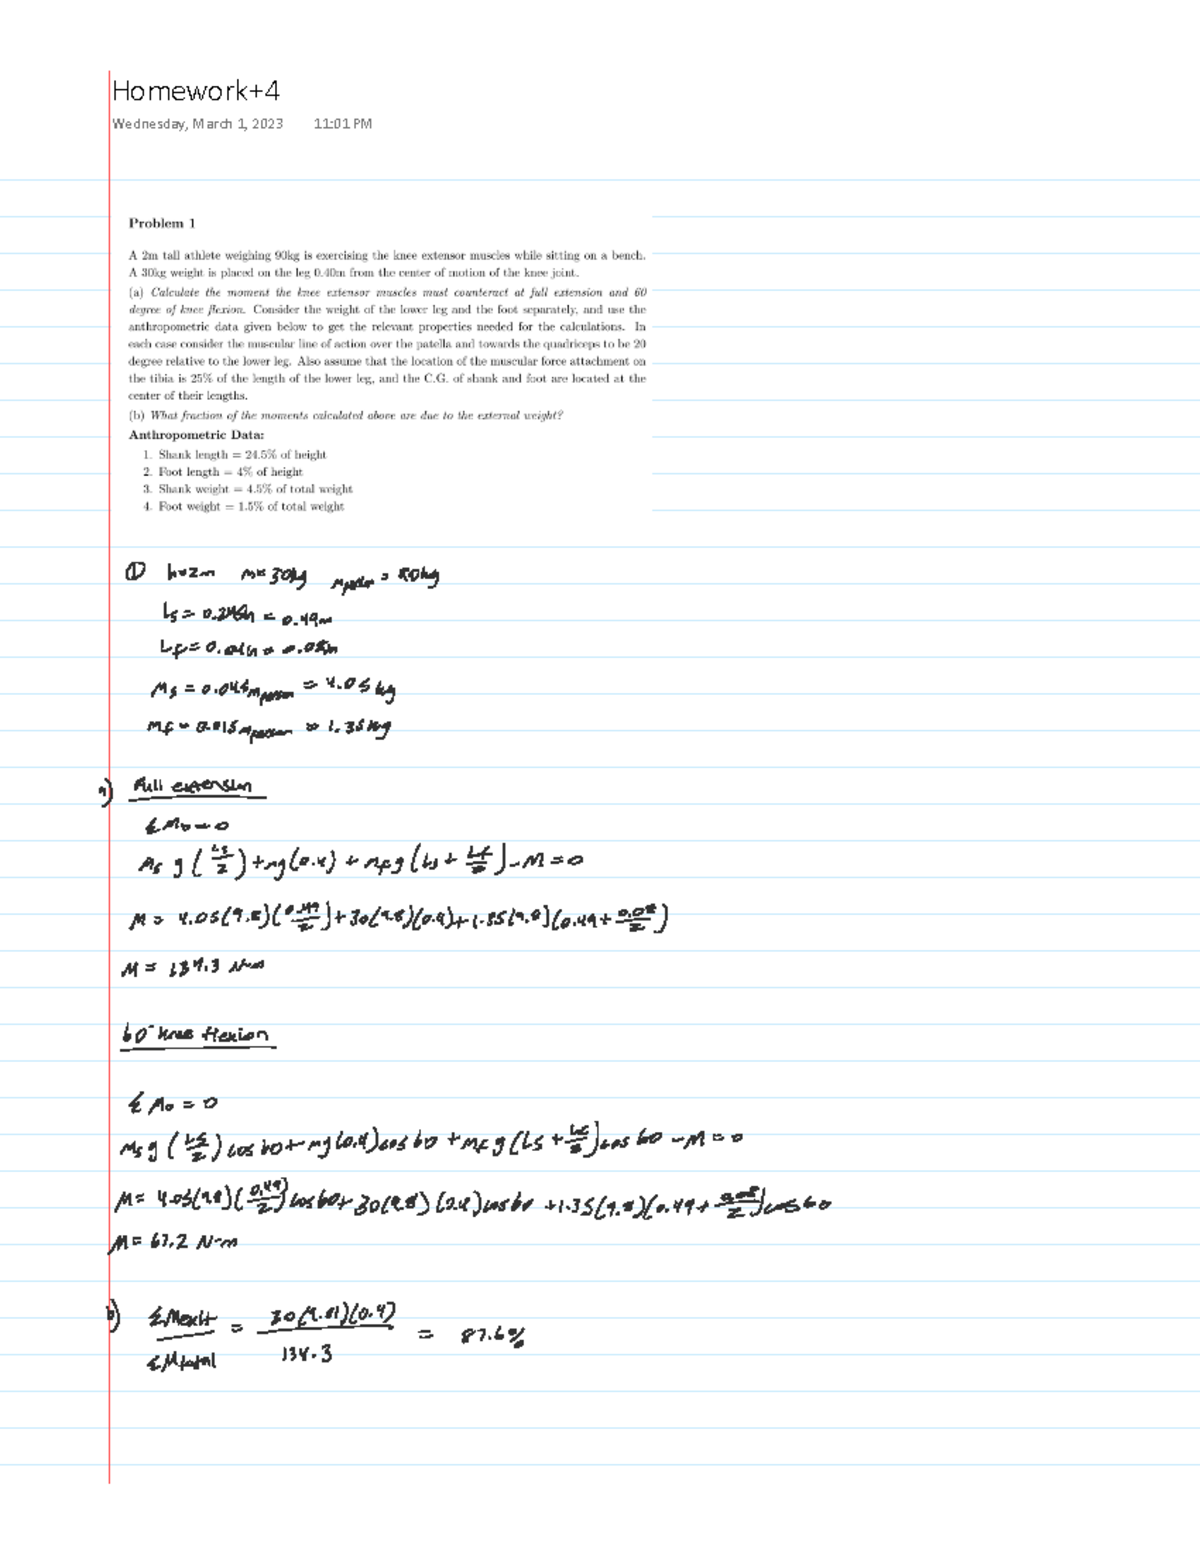 Homework+4
Wednesday, March 1, 2023 11:01 PM
Problem 1
A 2m tall athlete weighing 90kg is exercising the knee extensor muscles while sitting on a bench.
A 30kg weight is placed on the leg 0.40m from the center of motion of the knee joint.
(a) Calculate the moment the knee extensor muscles must counteract at full extension and 60
degree of knee flexion. Consider the weight of the lower leg and the foot separately, and use the
anthropometric data given below to get the relevant properties needed for the calculations. In
each case consider the muscular line of action over the patella and towards the quadriceps to be 20
degree relative to the lower leg. Also assume that the location of the muscular force attachment on
the tibia is 25% of the length of the lower leg, and the C.G. of shank and foot are located at the
center of their lengths.
(b) What fraction of the moments calculated above are due to the external weight?
Anthropometric Data:
1. Shank length = 24.5% of height
2. Foot length = 4% of height
3. Shank weight = 4.5% of total weight
4. Foot weight = 1.5% of total weight
① h=2m m=30kg Mperson = 90kg
Ls = 0.245h = 0.49m
Lf = 0.04h = 0.08m
Ms = 0.045Mperson = 4.05kg
Mf = 0.015Mperson = 1.35kg
a) Full extension
ΣMo=0
Ms g (Ls/2) + mg(0.4) + Mf g (Ls + Lf/2) - M = 0
M = 4.05(9.8)(0.49/2) + 30(9.8)(0.4) + 1.35(9.8)(0.49 + 0.08/2)
M = 134.3 N-m
60° knee flexion
ΣMo = 0
Ms g (Ls/2) cos60 + mg(0.4)cos60 + Mf g (Ls + Lf/2)cos60 - M = 0
M = 4.05(9.8)(0.49/2)cos60 + 30(9.8)(0.4)cos60 + 1.35(9.8)(0.49 + 0.08/2)cos60
M = 67.2 N-m
b) ΣMext/ΣMtotal = 30(9.81)(0.4)/134.3 = 87.6%